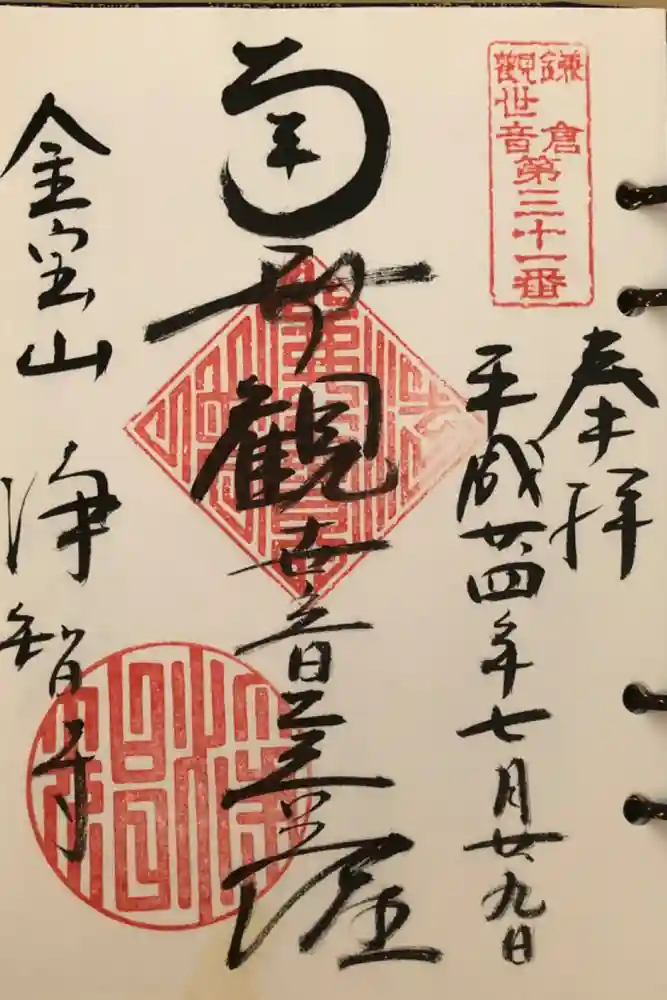 鎌倉
觀世音
第三十一番
奉拝
平成廿四年七月廿九日
南無觀世音菩薩
金宝山 浄智寺